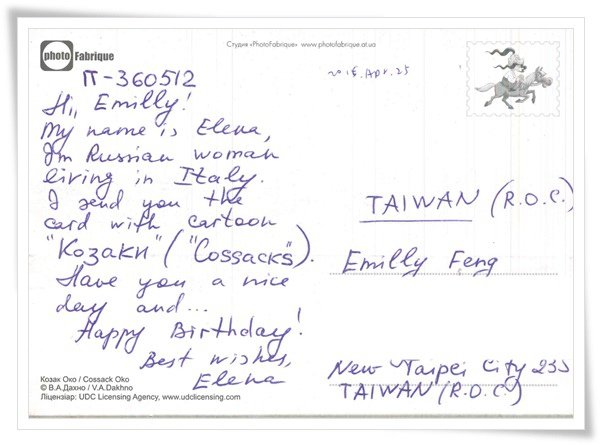 Студия «PhotoFabrique» www.photofabrique.at.ua
photo Fabrique
IT-360512
2016.Apr.25
Hi, Emilly!
My name is Elena,
I'm Russian woman
living in Italy.
I send you the
card with cartoon
"Козаки" ("Cossacks").
Have you a nice
day and...
Happy Birthday!
Best wishes,
Elena
TAIWAN (R.O.C.)
Emilly Feng
New Taipei City 235
TAIWAN (R.O.C.)
Козак Око / Cossack Oko
© В.А.Дахно / V.A.Dakhno
Ліцензіар: UDC Licensing Agency, www.udclicensing.com